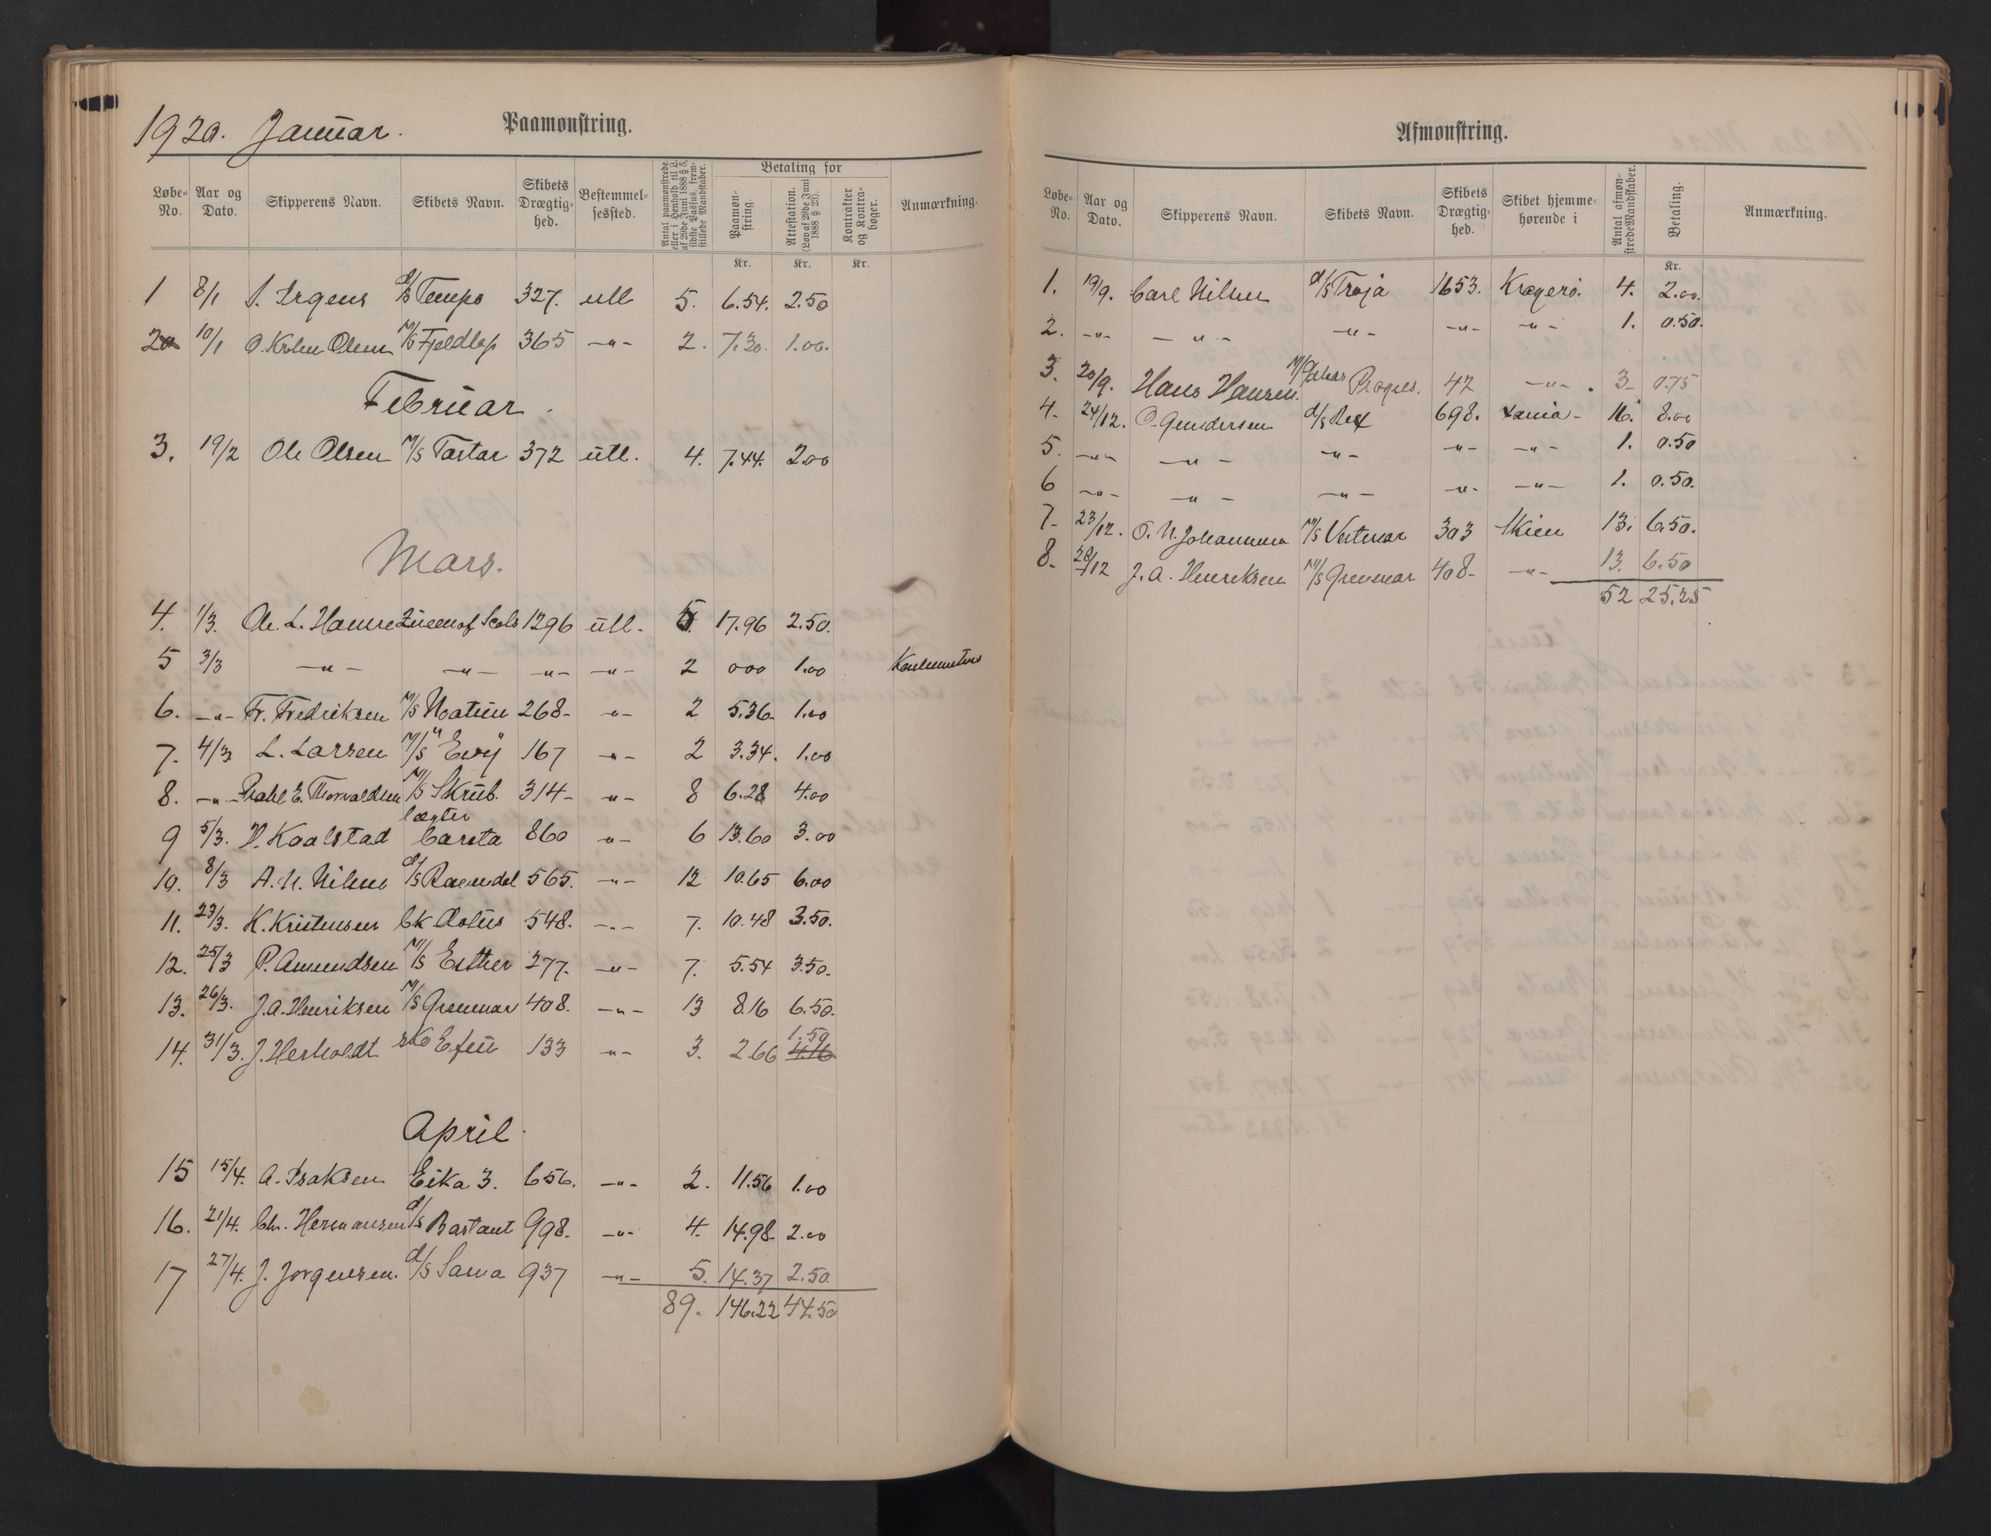 1920. Januar. Paamønstring.
Løbe-No. Aar og Dato. Skipperens Navn. Skibets Navn. Skibets Drægtighed. Bestemmelsessted. Antal paamønstrede eller i Henhold til L. af 29de Juni 1888 § 5, sidste Passus, fremstillede Mandskaber. Betaling for Paamønstring. Attestation. (Lov af 29de Juni 1888 § 23). Kontrakter og Kontrabøger. Anmærkning.
Kr. Kr. Kr.
1 8/1 S. Irgens d/s Tempo 327. utl 5. 6.54. 2.50
2 10/1 O. Olsen M/S Fjeldlop 365 -"- 2. 7.30. 1.00.
Februar.
3. 19/2 Ole Olsen M/S Tartar 372 utl. 4. 7.44. 2.00
Mars.
4. 1/3. Ole. L. Hamre Queen of Scots 1296 utl. 5 17.96 2.50.
5 3/3 -"- -"- -"- -"- 2 000 1.00
6. -"- Fr. Fredriksen M/S Noatun 268- -"- 2 5.36. 1.00
7. 4/3 L. Larsen M/S "Evy 167 -"- 2 3.34. 1.00
8. -"- E. Thorvaldsen M/S Skrub. 314- -"- 8 6.28 4.00
9 5/3. H. Kaalstad lægter Careta 860 -"- 6 13.60 3.00
10. 8/3 A. N. Nilsen d/s Raumdal 565. -"- 12 10.65 6.00
11. 23/3. K. Kristensen Ck 548. -"- 7. 10.48 3.50.
12. 25/3 P. Amundsen M/S Esther 277. -"- 7. 5.54 3.50.
13. 26/3. J. A. Henriksen M/S Grenmar 408. -"- 13 8.16 6.50.
14. 31/3. J. Herholdt sk Efeu 133 -"- 3. 2.66 4.16 1.50
April.
15 15/4. A. Isaksen Eika 3. 656. -"- 2. 11.56 1.00
16. 21/4. Chr. Hermansen d/s Bastant 998. -"- 4. 14.98 2.00
17 27/4. J. Jorgensen. d/s Sarna 937 -"- 5. 14.37 2.50.
89. 146.22 44.50
Afmønstring.
Løbe-No. Aar og Dato. Skipperens Navn. Skibets Navn. Skibets Drægtighed. Skibet hjemmehørende i Antal afmønstrede Mandskaber. Betaling. Anmærkning.
Kr.
1. 19/9. Carl Nilsen d/s Troja 1653. Kragerø. 4. 2.00.
2. -"- -"- -"- -"- -"- 1. 0.50.
3. 20/9. Hans Hansen. 42 -"- 3- 0.75
4. 24/12. O. Gundersen d/s Rex 698. Xania- 16. 8.00
5. -"- -"- -"- -"- -"- 1. 0.50
6 -"- -"- -"- -"- -"- 1. 0.50.
7. 23/12. O. N. Johannesen M/S Vestmar 303 Skien 13. 6.50.
8. 28/12 J. A. Henriksen M/S Grenmar 408- -"- 13. 6.50
52 25.25